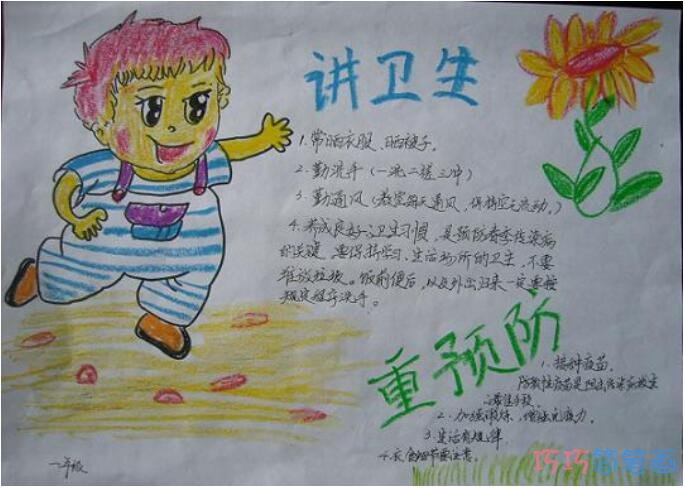 讲卫生
1.常晒衣服、晒被子。
2.勤洗手(一洗二搓三冲)
3.勤通风(教室每天通风,保持空气流动。)
4.养成良好卫生习惯,是预防春季传染病
的关键,要保持学习、生活场所的卫生,不要
堆放垃圾。饭前便后,以及外出归来一定要按
规定程序洗手。
重预防
1.接种疫苗。
防性疫苗是阻止传染病发生
的最佳手段。
2.加强锻炼,增强免疫力。
3.生活有规律
4.衣食细节要注意。
一年级
巧巧简笔画